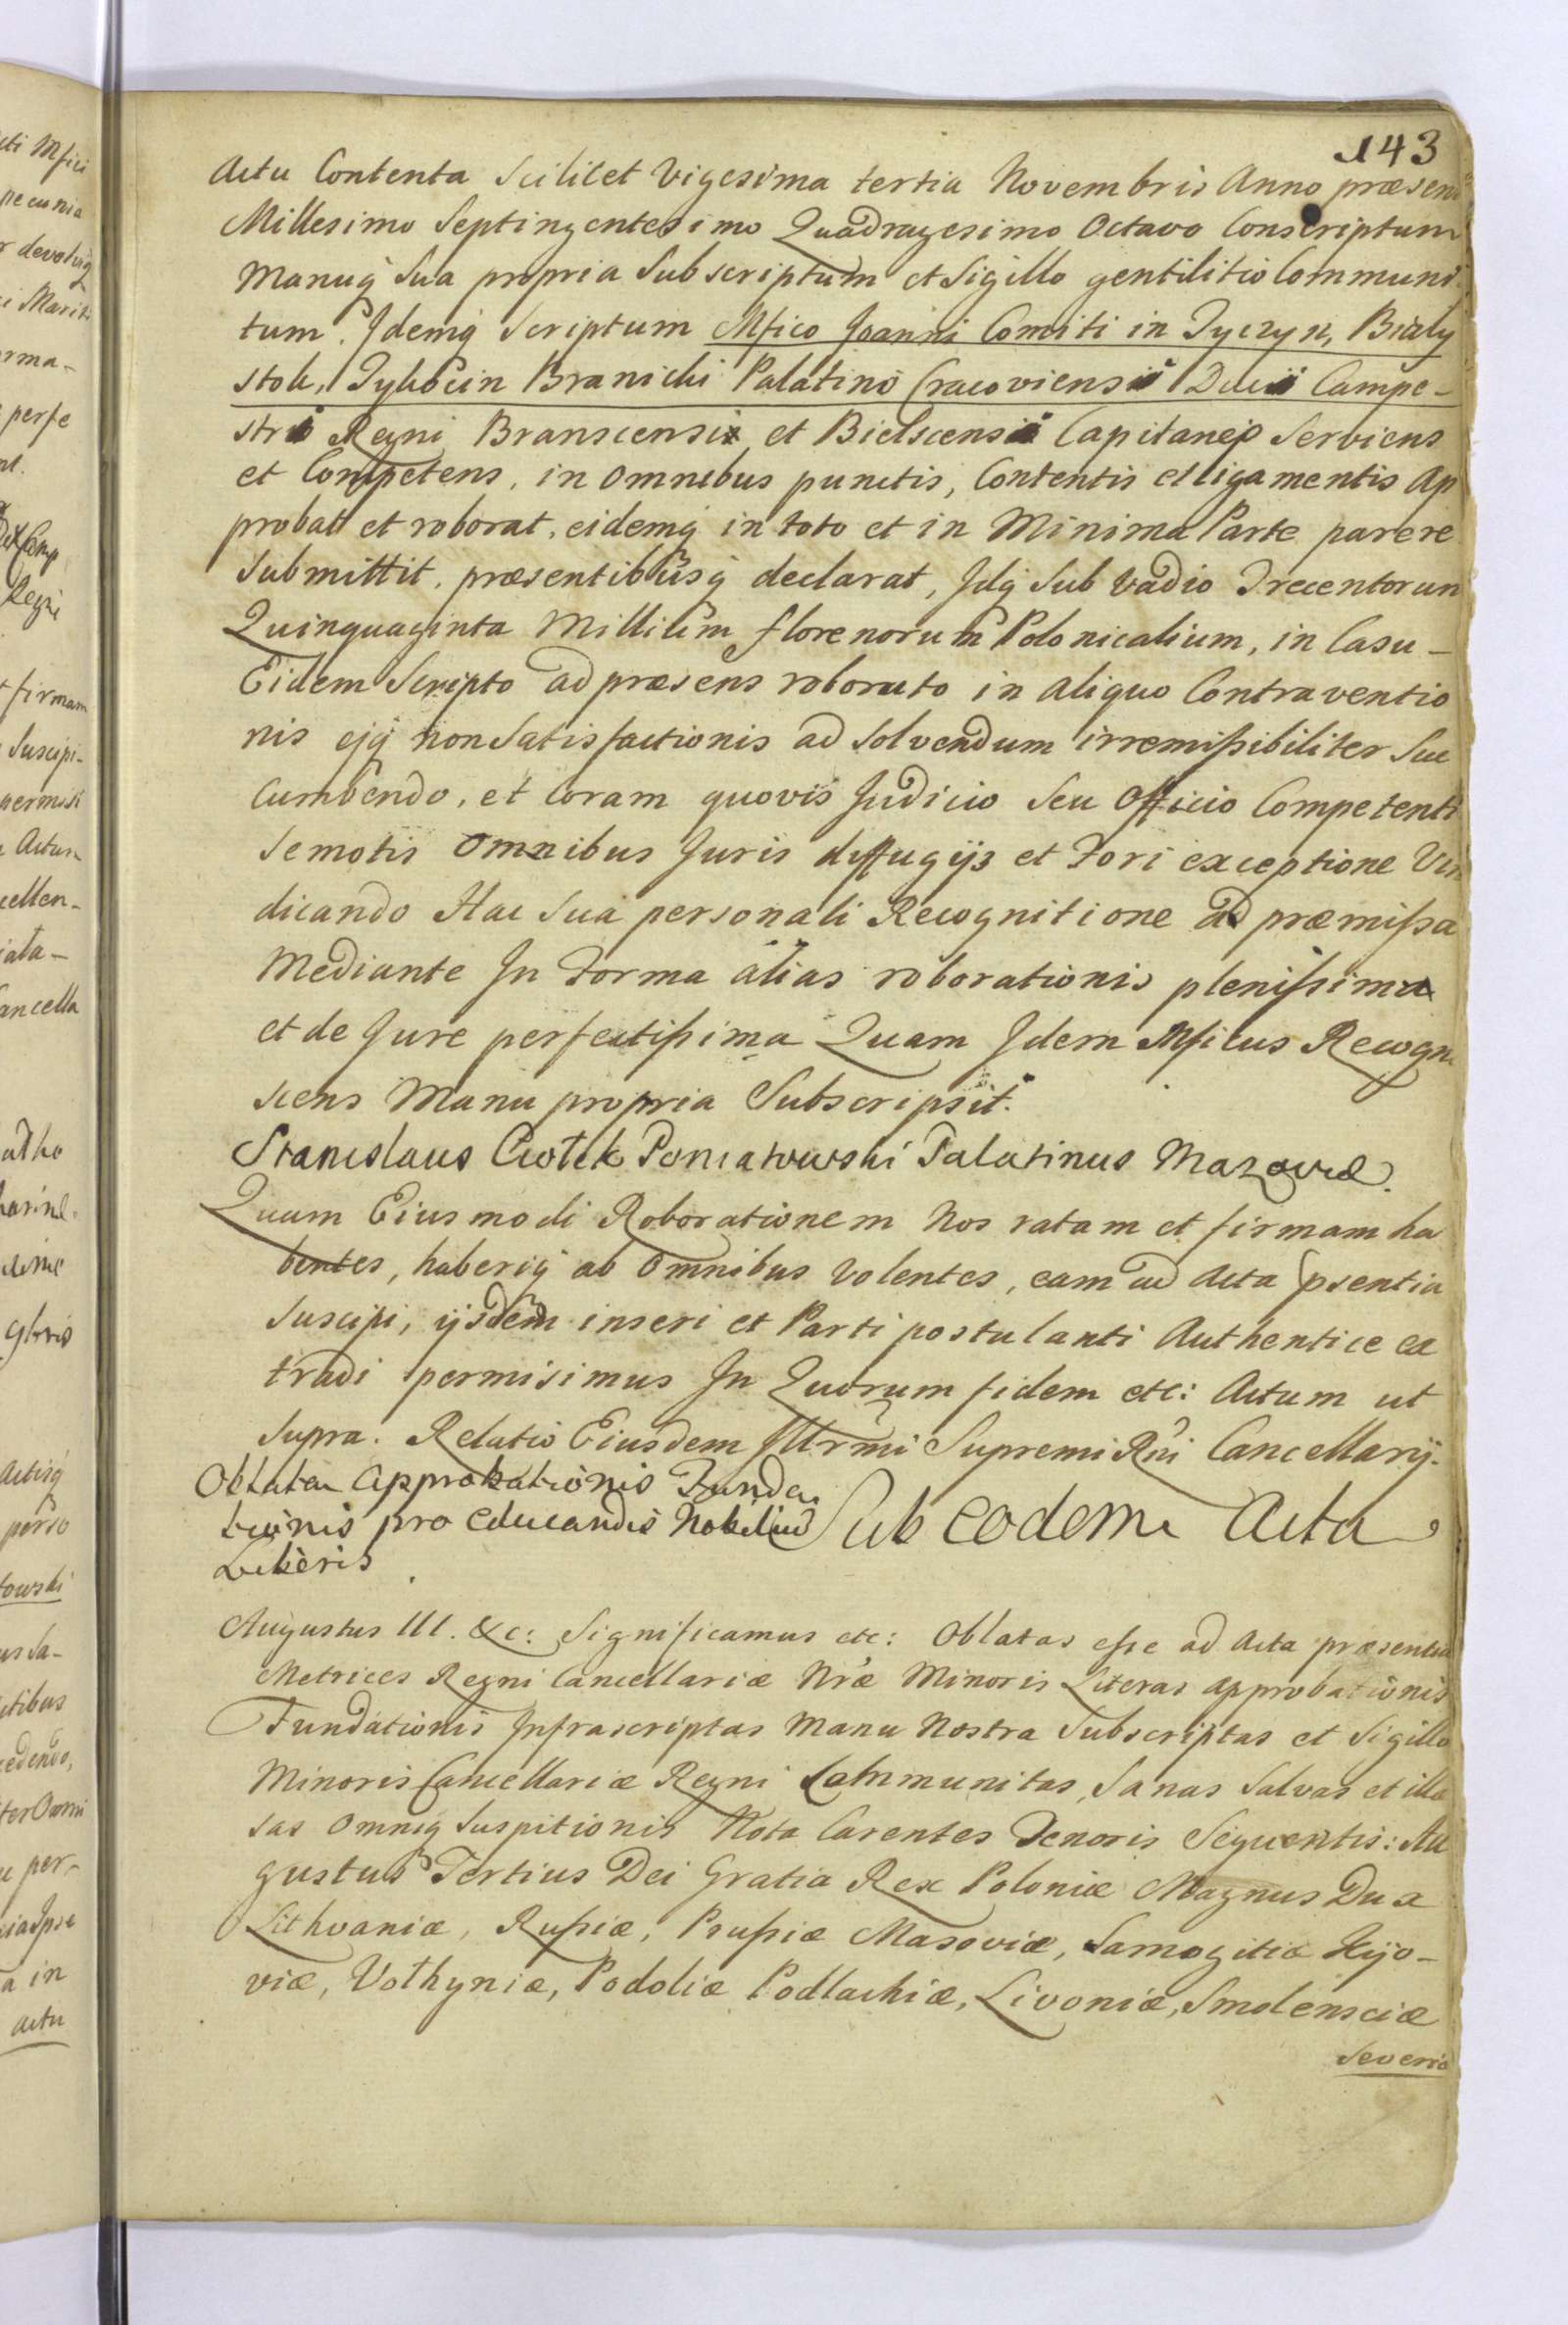 143
Actu Contenta Scilicet Vigesima tertia Novembris Anno præsenti
Millesimo Septingentesimo Quadragesimo Octavo Conscriptum
Manuq̨ Sua propria Subscriptum et Sigillo gentilitio Communi
tum. Idemq̨ Scriptum Mfico Joanni Comiti in Tyczyn, Biały
stok, Tykocin Branicki Palatino Cracoviensi Duci Campe-
stri Regni Branscensi et Bielscensi Capitaneo Serviens
et Competens, in omnibus punctis, Contentis et ligamentis Ap
probat et roborat, eidemq̨ in toto et in Minima Parte parere
Submittit, præsentibusq̨ declarat, Idq̨ Sub Vadio Trecentorum
Quinquaginta Millium florenorum Polonicalium, in Casu-
Eidem Scripto ad præsens roborato in aliquo Contraventio
nis ejq̨ non Satisfactionis ad Solvendum irremissibiliter Suc
Cumbendo, et Coram quovis Judicio Seu Officio Competenti
Semotis Omnibus Juris diffugijs et Fori exceptione Vin
dicando Hac Sua personali Recognitione ad præmissa
Mediante In Forma alias roborationis plenissima
et de Jure perfectissima Quam Idem Mficus Recogno
scens Manu propria Subscripsit.
Stanislaus Ciołek Poniatowski Palatinus Mazoviæ.
Quam Eiusmodi Roborationem Nos ratam et firmam ha
bentes, haberiq̨ ab Omnibus Volentes, eam ad Acta psentia
Suscipi, ijsdem inseri et Parti postulanti Authentice ex
tradi permisimus In Quorum fidem etc: Actum ut
Supra. Relatio Eiusdem Illrmi Supremi Rni Cancellarij.
Oblata Approbationis Funda
tionis pro educandis Nobiliũ
Liberis
Sub eodem Acta
Augustus III. &c: Significamus etc: Oblatas esse ad Acta præsentia
Metrices Regni Cancellariæ Nræ Minoris Literas approbationis
Fundationis Infrascriptas Manu Nostra Subscriptas et Sigillo
Minoris Cancellariæ Regni Communitas, Sanas Salvas et illæ
sas Omniq̨ Suspitionis Nota Carentes Tenoris Sequentis: Au
gustus Tertius Dei Gratia Rex Poloniæ Magnus Dux
Lithvaniæ, Russiæ, Prussiæ Masoviæ, Samogitiæ Kijo-
viæ, Volhyniæ, Podoliæ Podlachiæ, Livoniæ, Smolensciæ
Severiæ